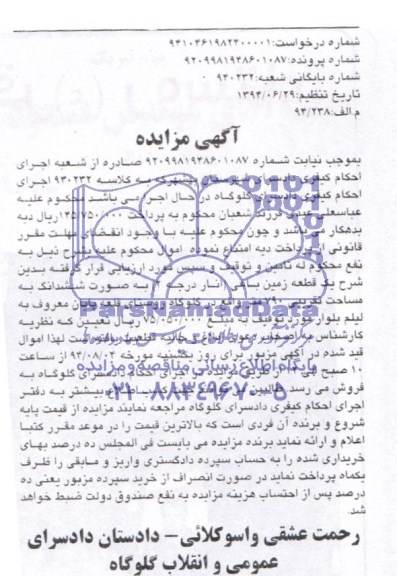 شماره درخواست: ۹۴۱۰۴۶۱۹۸۲۴۰۰۰۰۱
شماره پرونده: ۹۲۰۹۹۸۱۹۴۸۶۰۱۰۸۷
شماره بایگانی شعبه: ۹۳۰۲۳۲
تاریخ تنظیم: ۱۳۹۴/۰۶/۲۹
م.الف: ۹۴/۲۳۸
آگهی مزایده
بموجب نیابت شماره ۹۲۰۹۹۸۱۹۴۸۶۰۱۰۸۷ صادره از شعبه اجرای
احکام کیفری دادسرای شهرستان بهشهر که به کلاسه ۹۳۰۲۳۲ اجرای
احکام کیفری دادسرای گلوگاه در حال اجر می باشد محکوم علیه
عباسعلی فرزند شعبان محکوم به پرداخت ریال دیه
بدهکار می باشد و چون محکوم علیه با وجود انقضای مهلت مقرر
قانونی از پرداخت دیه امتناع نموده اموال محکوم علیه بشرح ذیل به
نفع محکوم له تامین و توقیف و سپس مورد ارزیابی قرار گرفته بدین
شرح یک قطعه زمین باغی انار درجه به صورت ششدانگ به
مساحت تقریبی ۷۹۰ متر واقع در گلوگاه روستای معروف به
بلوار مورد توقیف به مبلغ ریال تعیین که نظریه
کارشناس به قطعیت یافته است لهذا اموال
قید شده در آگهی مزبور برای روز یکشنبه مورخه ۹۴/۰۸/۰۳ از ساعت
۱۰ صبح الی از طریق مزایده در اجرای احکام دادسرای گلوگاه به
فروش می رسد طالبین بیشتر به دفتر
اجرای احکام کیفری دادسرای گلوگاه مراجعه نمایند مزایده از قیمت پایه
شروع و برنده آن فردی است که بالاترین قیمت را در موعد مقرر کتبا
اعلام و ارائه نماید برنده مزایده می بایست فی المجلس ده درصد بهای
خریداری شده را به حساب سپرده دادگستری واریز و مابقی را ظرف
یکماه پرداخت نماید در صورت انصراف از خرید سپرده مزبور یعنی ده
درصد پس از احتساب هزینه مزایده به نفع صندوق دولت ضبط خواهد
شد.
رحمت عشقی واسوکلائی - دادستان دادسرای
عمومی و انقلاب گلوگاه
ParsNamadData
پایگاه اطلاع رسانی مناقصه و مزایده
۰۲۱-۸۸۳۴۹۶۷۰-۵